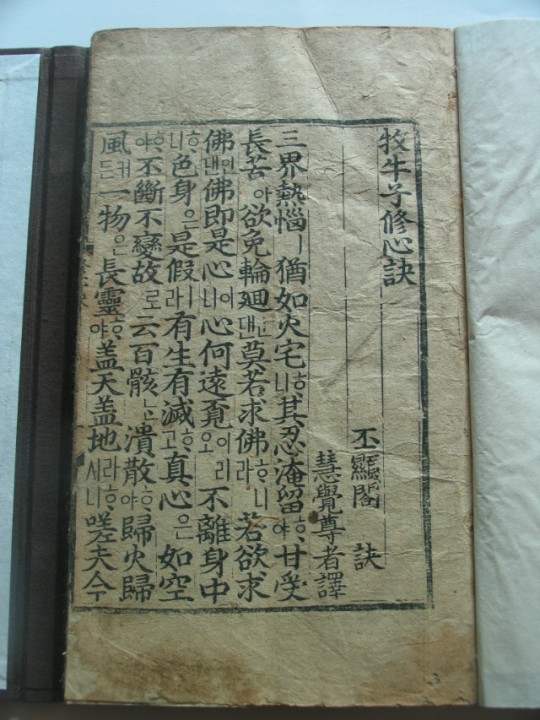 牧牛子修心訣
丕顯閤 訣
慧覺尊者譯
三界熱惱ㅣ猶如火宅ᄒᆞ니其忍淹留ᄒᆞ야甘受
長苦아欲免輪廻ᆫ댄莫若求佛ᄒᆞ니라若欲求
佛인댄佛即是心이니心何遠覔이리오不離身中
ᄒᆞ니色身은是假ㅣ라有生有滅ᄒᆞ고真心은如空
ᄒᆞ야不斷不變故로云百骸ᄂᆞᆫ潰散ᄒᆞ야歸火歸
風커든一物은長靈ᄒᆞ야盖天盖地라ᄒᆞ시니嗟夫今